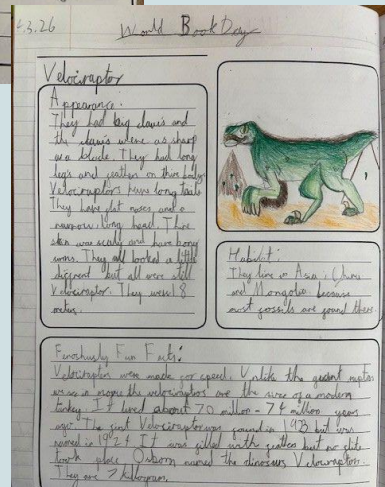 4.3.26
World Book Day
Velociraptor
Appearance:
They had big claws and
the claws were as sharp
as a blade. They had long
legs and feathers on thire body.
Velociraptors have long tails
They have flat noses and a
narrow long head. Thire
skin was scaly and have bony
arms. They all looked a little
different but all were still
Velociraptor. They were 1.8
metres.
Habitat:
They live in Asia: China
and Mongolia because
most fossils are found there.
Feroshusly Fun Facts:
Velociraptors were made for speed. Unlike the
in movie the velociraptors are the size of a modern
turkey. It lived about 70 million - 74 million years
ago. The first Velociraptor was found in 1923 but was
named in 1924. It was filled with feathers but no flite
took place. Osborn named the dinosaurs Velociraptor.
They are 7 kilogram.